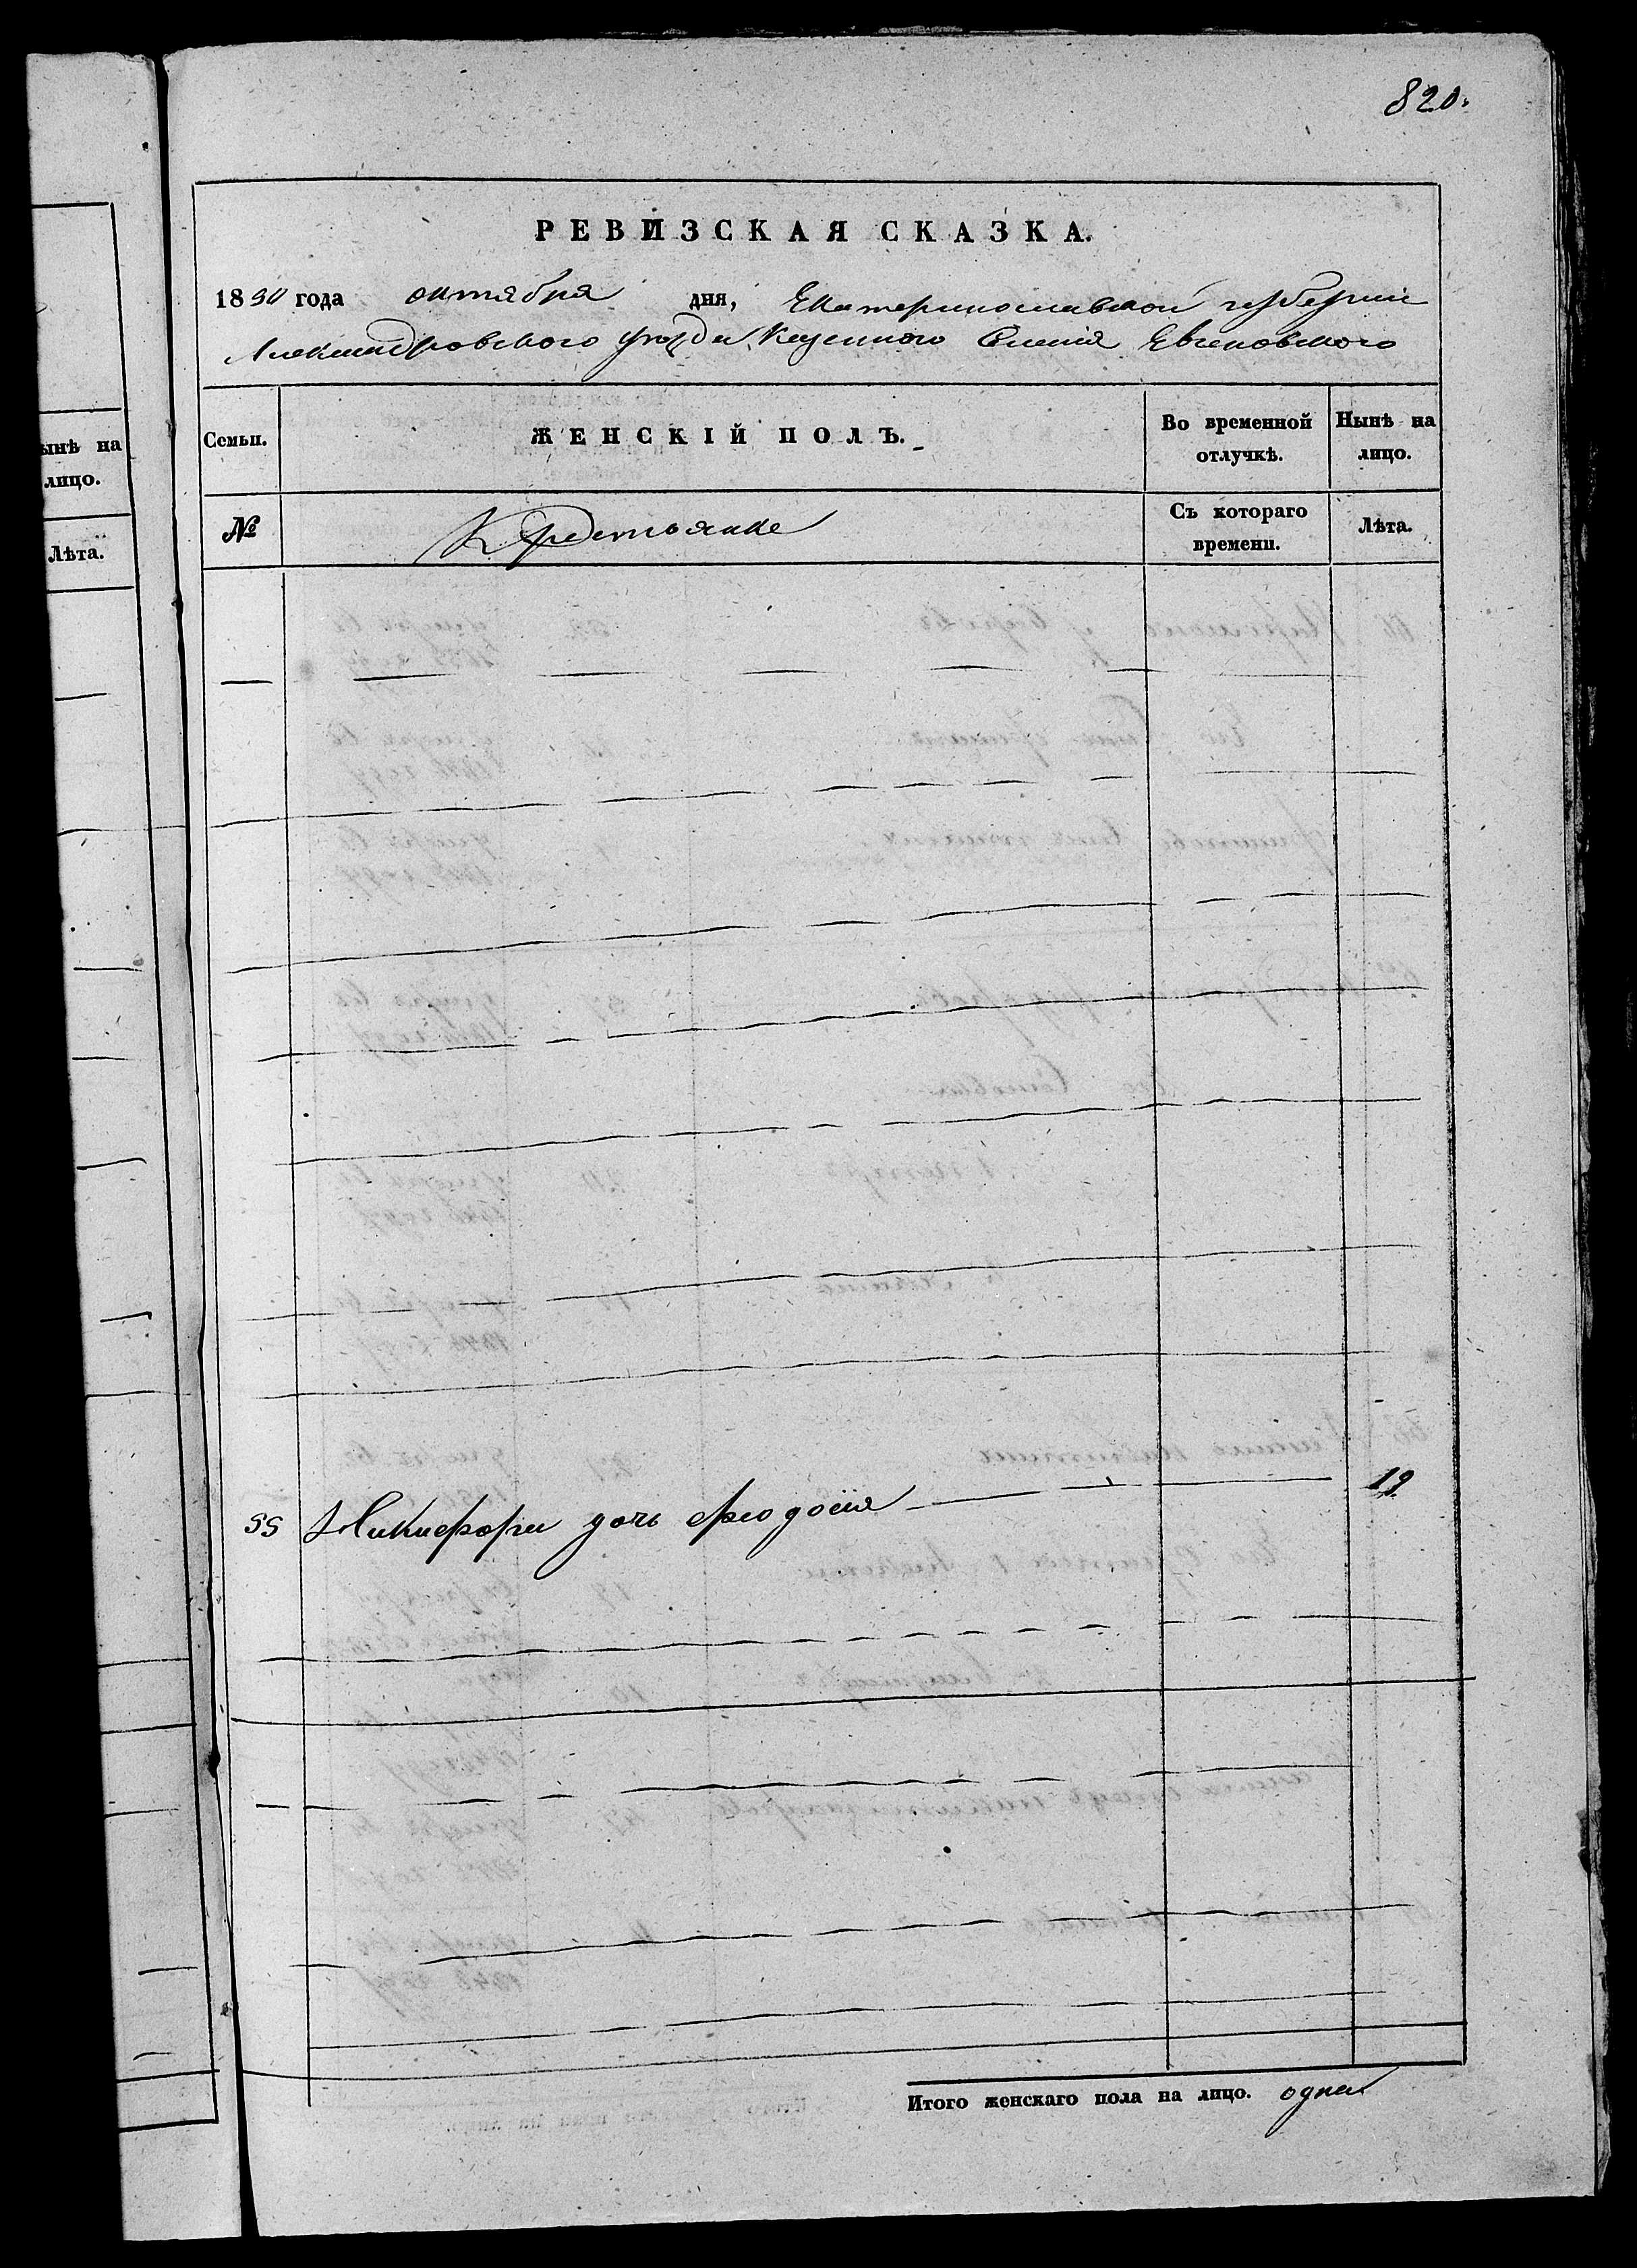 820.
РЕВИЗСКАЯ СКАЗКА.
1850 года октября дня, Екатеринославской губернии
Александровского уезда Казенного Селенія Евсеновского
ынѣ на
лицо.
Лѣта.
Семьи.
ЖЕНСКІЙ ПОЛЪ.
Во временной
отлучкѣ.
Нынѣ на
лицо.
№
Крестьянке
Съ котораго
времени.
Лѣта.
55 Никифора дочь Феодосія 19
Итого женскаго пола на лицо. одна